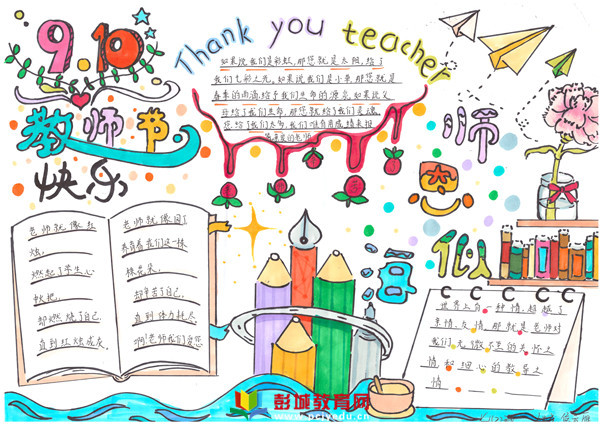 9.10
教师节
快乐
Thank you teacher
如果说我们是彩虹,那您就是太阳,给了
我们七彩之光,如果说我们是小草,那您就是
春季的雨滴,给予我们生命的源泉,如果说父
母给了我们生命,那您就给了我们灵魂
师恩似海
老师就像红
烛,
燃起了学生心
却燃烧了自己
直到红烛成灰。
老师就像园丁
养育着我们这一株
株花朵,
却辛苦了自己,
直到体力耗尽
啊!老师我们爱您
世界上有一种情,超越了
亲情、友情,那就是老师对
我们无微不至的关怀之
情和细心的教导之
情
彭城教育网